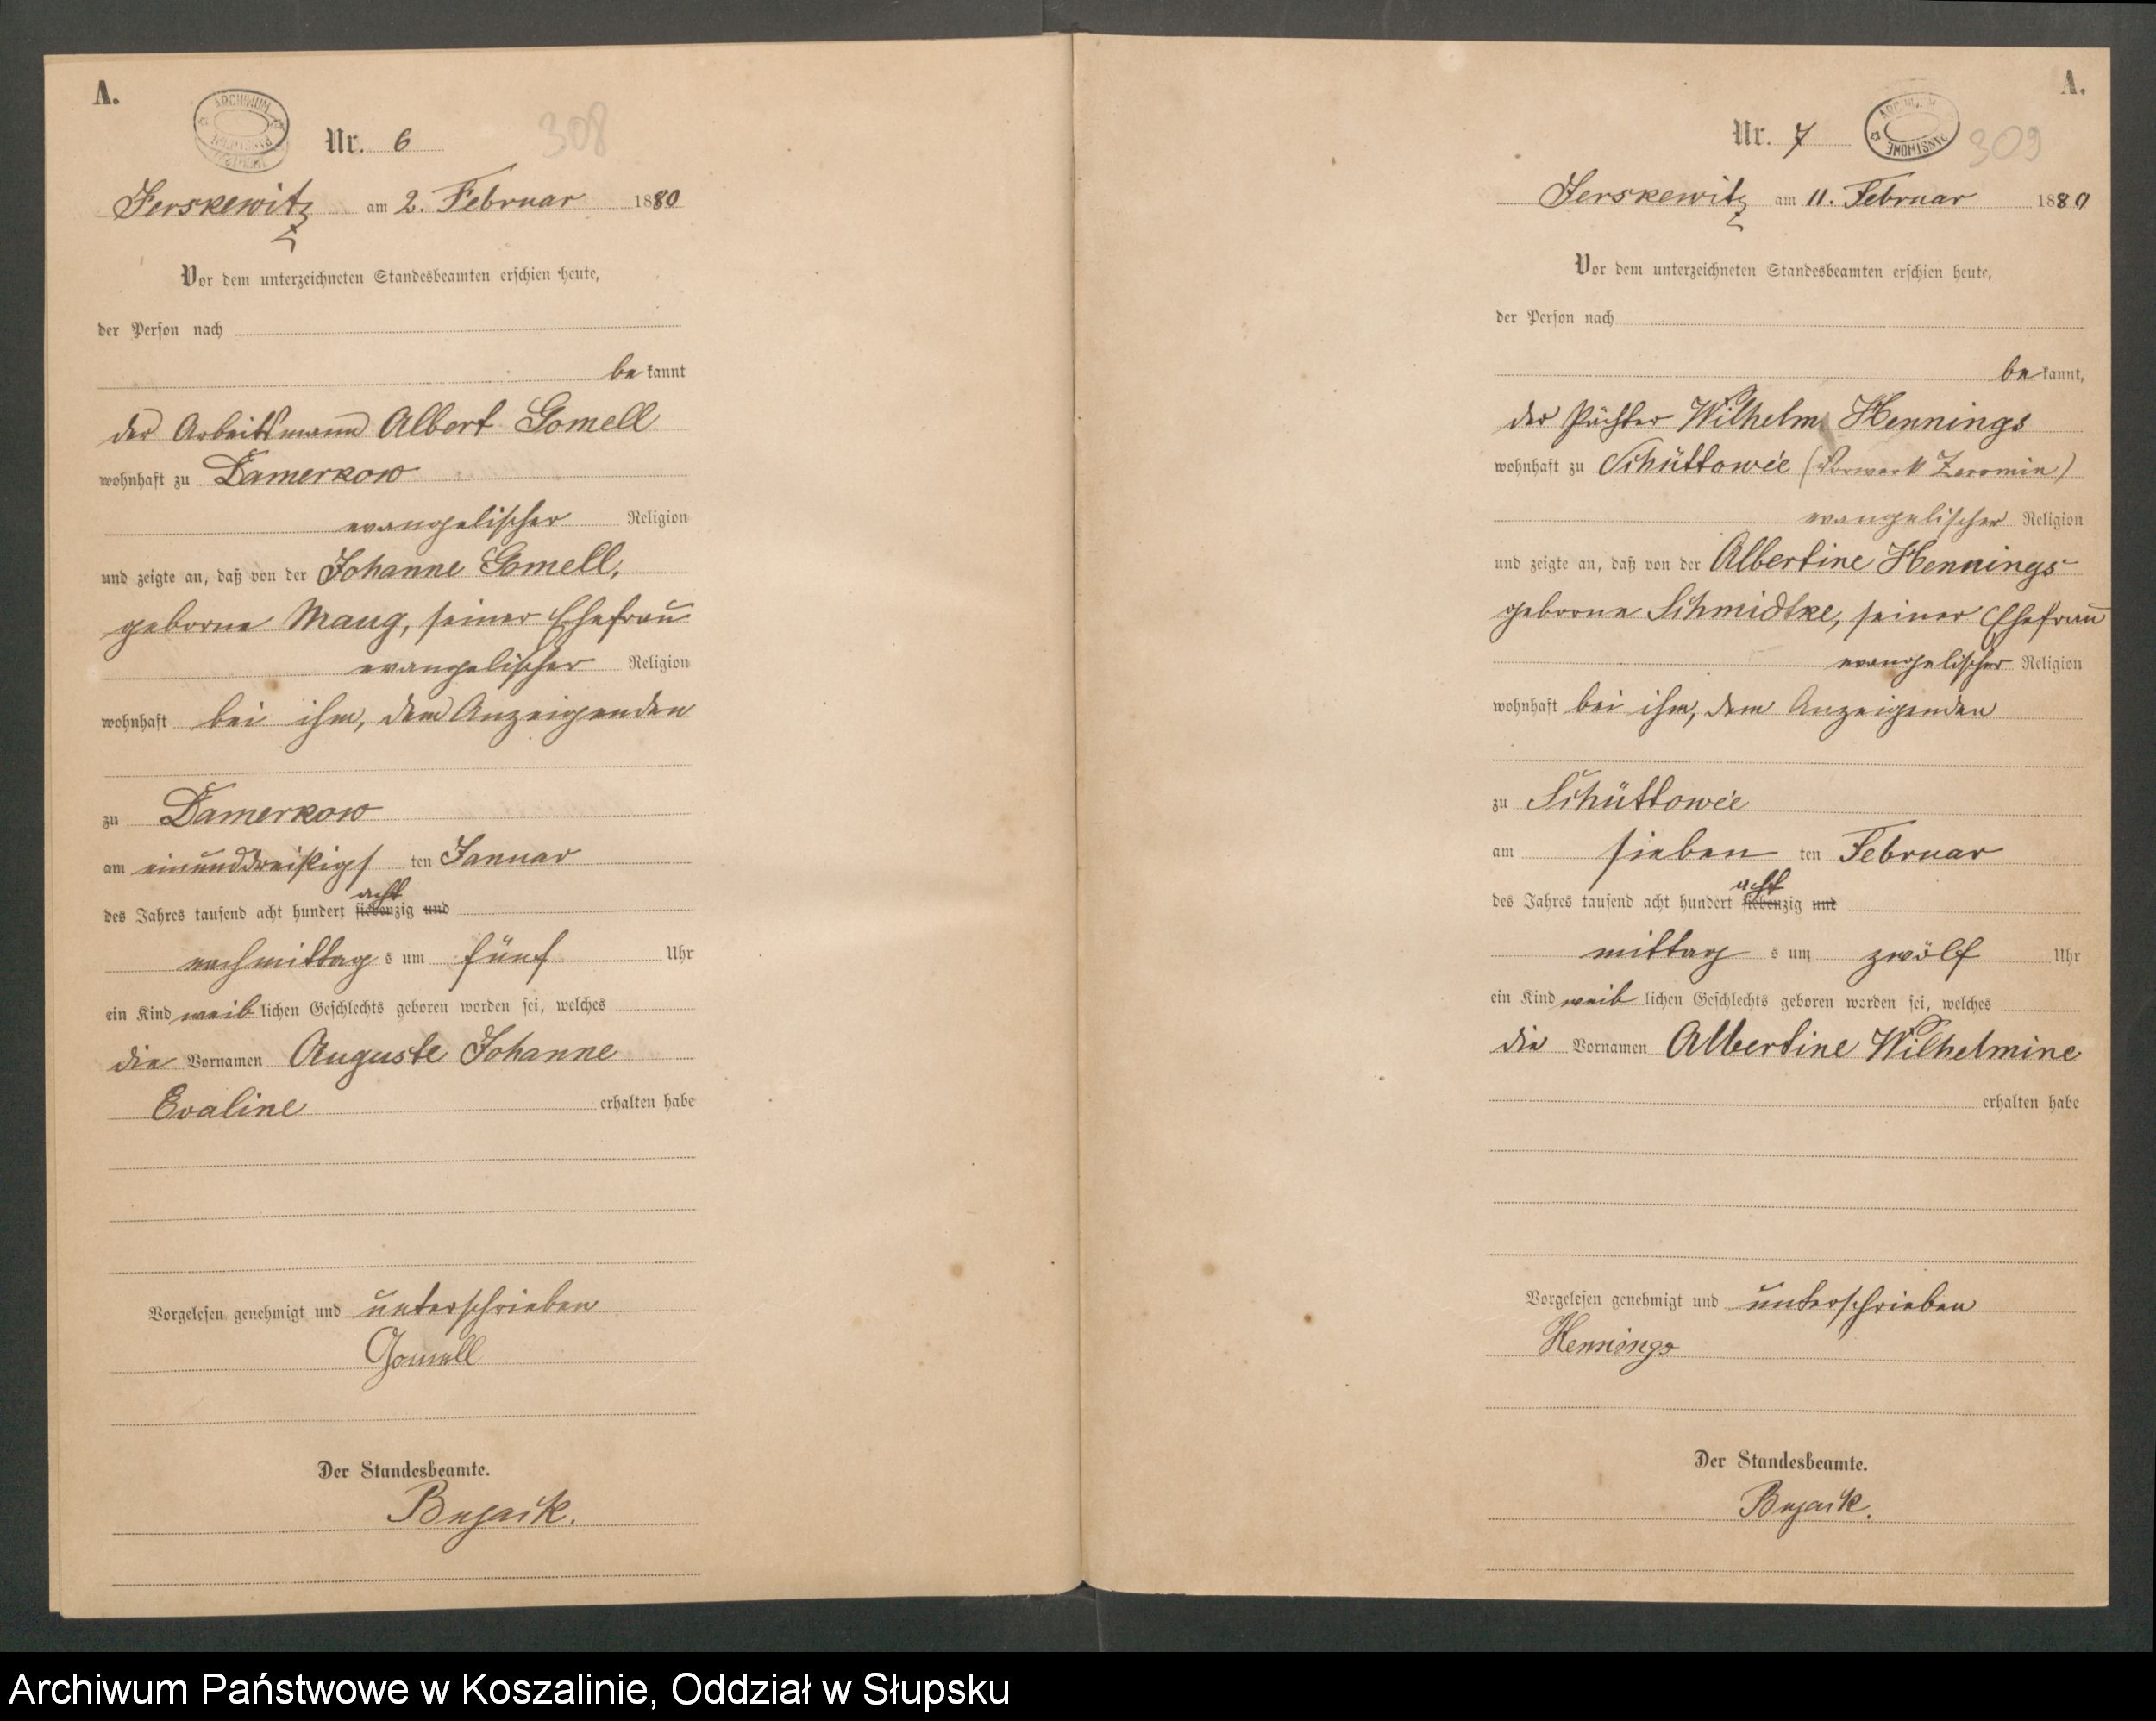 A.
ARCHIWUM PAŃSTWOWE
Nr. 6
308
Jerskewitz am 2. Februar 1880
Vor dem unterzeichneten Standesbeamten erschien heute,
der Person nach
be kannt
der Arbeitsmann Albert Gomell
wohnhaft zu Damerkow
evangelischer Religion
und zeigte an, daß von der Johanne Gomell,
geborne Maug, seiner Ehefrau
evangelischer Religion
wohnhaft bei ihm, dem Anzeigenden
zu Damerkow
am einunddreißigs ten Januar
acht
des Jahres tausend acht hundert siebenzig und
nachmittag s um fünf Uhr
ein Kind weib lichen Geschlechts geboren worden sei, welches
die Vornamen Auguste Johanne
Evaline erhalten habe
Vorgelesen genehmigt und unterschrieben
Gomell
Der Standesbeamte.
A.
Nr. 7
ARCHIWUM PAŃSTWOWE
309
Jerskewitz am 11. Februar 1880
Vor dem unterzeichneten Standesbeamten erschien heute,
der Person nach
be kannt,
der Pächter Wilhelm Hennings
wohnhaft zu Schüttowie (Vorwerk Zeromin)
evangelischer Religion
und zeigte an, daß von der Albertine Hennings
geborne Schmidtke, seiner Ehefrau
evangelischer Religion
wohnhaft bei ihm, dem Anzeigenden
zu Schüttowie
am sieben ten Februar
acht
des Jahres tausend acht hundert siebenzig und
mittag s um zwölf Uhr
ein Kind weib lichen Geschlechts geboren worden sei, welches
die Vornamen Albertine Wilhelmine
erhalten habe
Vorgelesen genehmigt und unterschrieben
Hennings
Der Standesbeamte.
Archiwum Państwowe w Koszalinie, Oddział w Słupsku